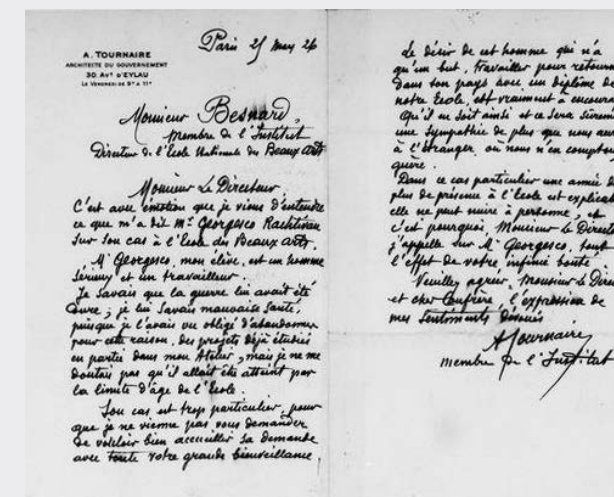 A. TOURNAIRE
ARCHITECTE DU GOUVERNEMENT
30 AVt D'EYLAU
LE VENDREDI DE 9h A 11h
Paris 25 May 26
Monsieur Besnard,
Membre de l'Institut
Directeur de l'Ecole Nationale des Beaux Arts
Monsieur Le Directeur
C'est avec émotion que je viens d'entendre
ce que m'a dit Mr Georgesco
sur son cas à l'Ecole des Beaux Arts.
Mr Georgesco, mon élève, est un homme
sérieux et un travailleur.
Je savais que la guerre lui avait été
dure ; je lui savais mauvaise santé,
puisque je l'avais vu obligé d'abandonner
pour cette raison, des projets déjà étudiés
en partie dans mon Atelier, mais je ne me
doutais pas qu'il allait être atteint par
la limite d'âge de l'Ecole.
Son cas est trop particulier, pour
que je ne vienne pas vous demander
de vouloir bien accueillir sa demande
avec toute votre grande bienveillance.
Le désir de cet homme qui n'a
qu'un but, travailler pour retourner
dans son pays avec un diplôme de
notre Ecole, est vraiment à
Qu'il en soit ainsi et ce sera
une sympathie de plus que nous
à l'étranger où nous n'en
guère.
Dans ce cas particulier une année de
plus de présence à l'école est
elle ne peut nuire à personne, et
c'est pourquoi, Monsieur le
j'appelle sur Mr Georgesco, tout
l'effet de votre infinie bonté
Veuillez agréer, Monsieur le
et cher Confrère, l'expression de
mes sentiments dévoués
A Tournaire
membre de l'Institut